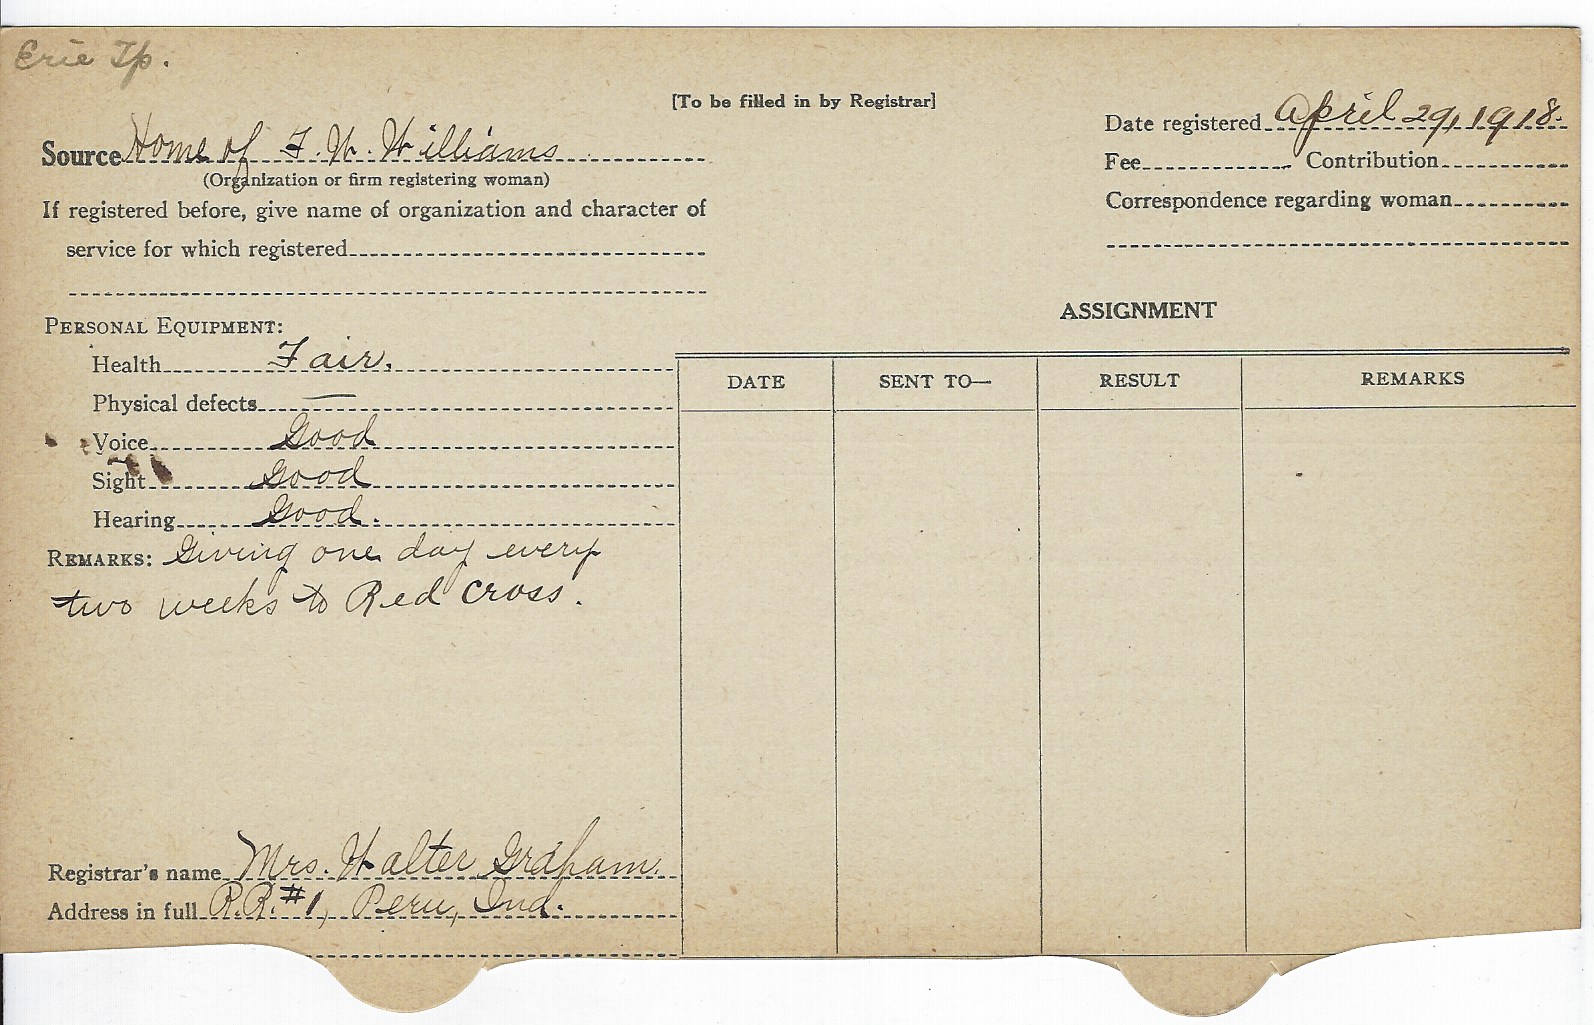 Erie Tp.
[To be filled in by Registrar]
Date registered April 29, 1918.
Source Home of F. W. Williams
(Organization or firm registering woman)
Fee Contribution
If registered before, give name of organization and character of
Correspondence regarding woman
service for which registered
ASSIGNMENT
PERSONAL EQUIPMENT:
Health Fair.
DATE SENT TO— RESULT REMARKS
Physical defects —
Voice Good
Sight Good
Hearing Good.
REMARKS: Giving one day every
two weeks to Red Cross.
Registrar's name Mrs. Walter Graham.
Address in full R.R. #1, Peru, Ind.